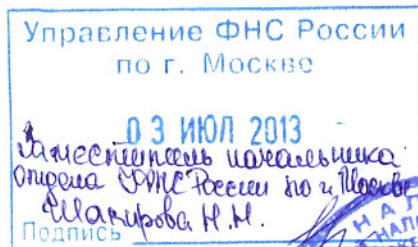 Управление ФНС России
по г. Москве
03 ИЮЛ 2013
Заместитель начальника
отдела УФНС России по г. Москве
Шакирова Н.Н.
Подпись